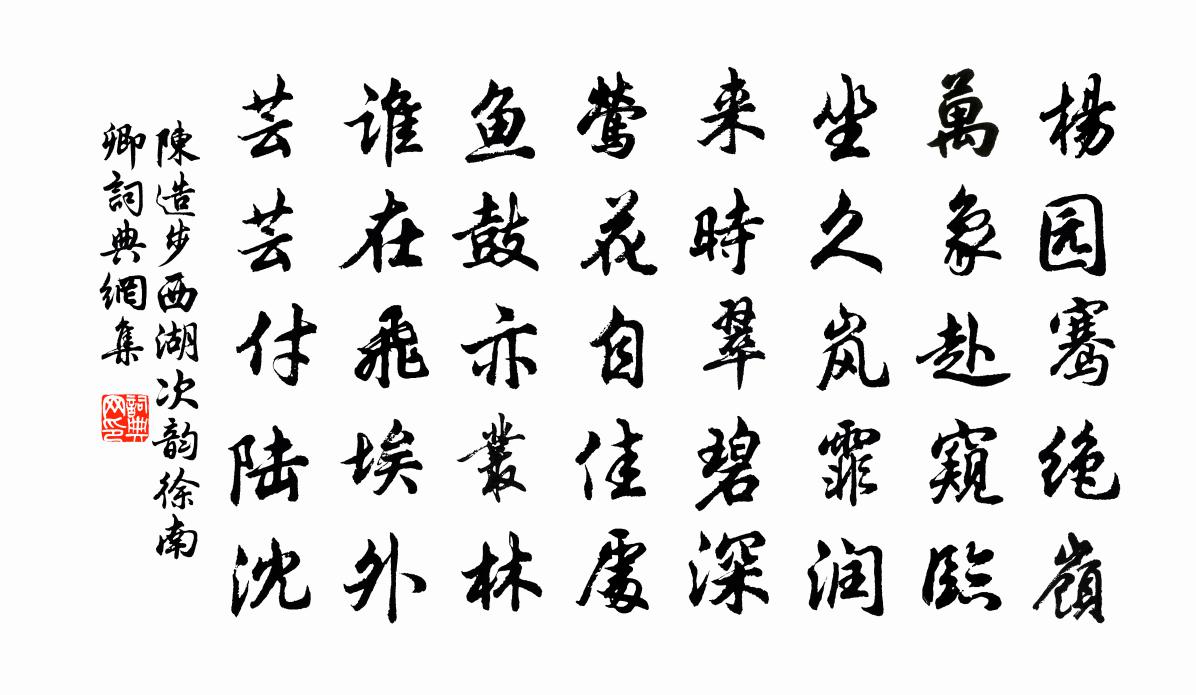 楊园骞绝嶺
萬象赴窺臨
坐久岚霏润
来時翠碧深
莺花自佳處
鱼鼓亦叢林
谁在飛埃外
芸芸付陆沈
陳造步西湖次韵徐南
卿詞典網集
詞典
网印